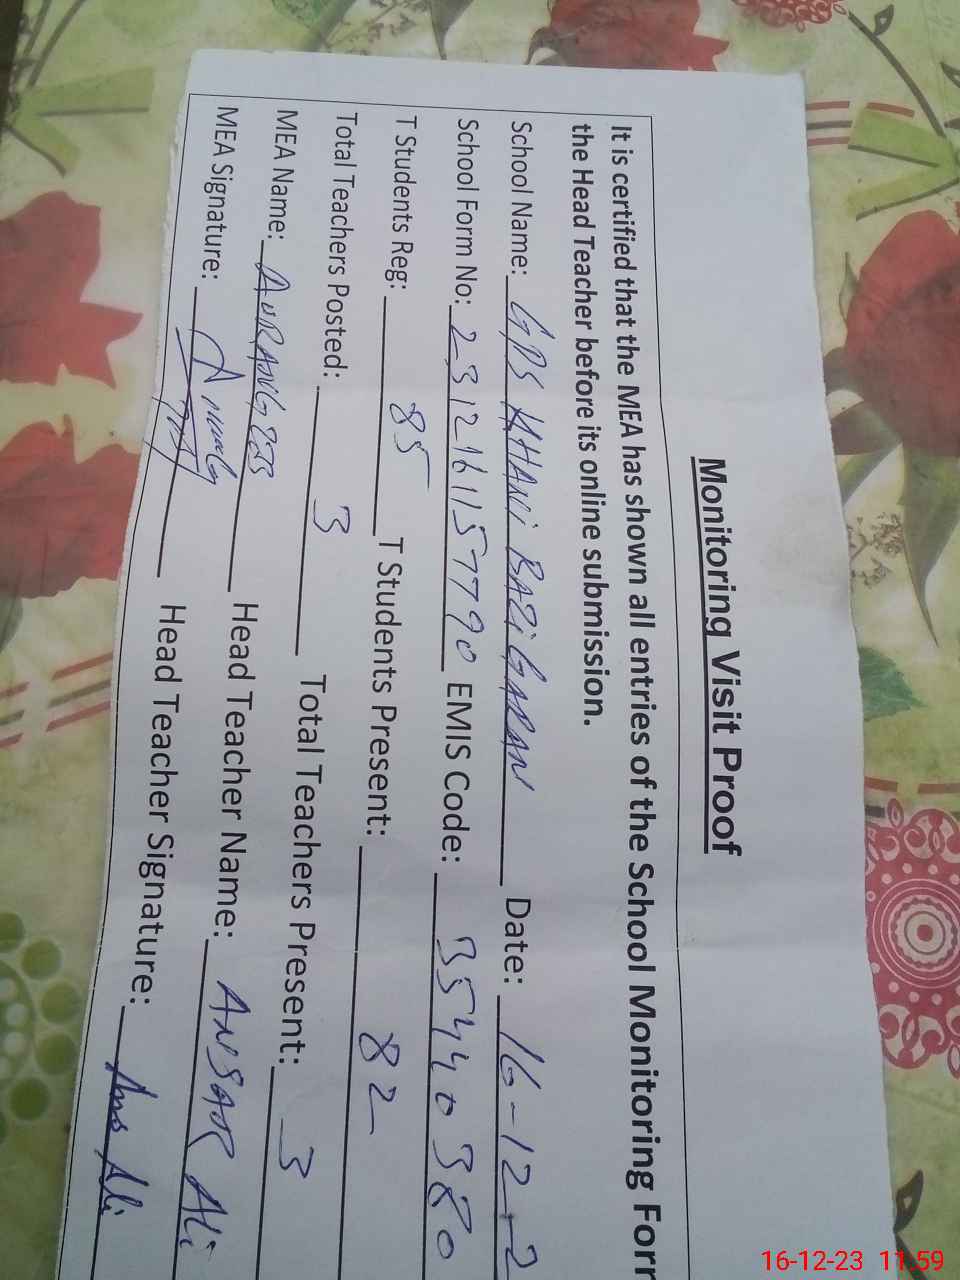 Monitoring Visit Proof
It is certified that the MEA has shown all entries of the School Monitoring Forr
the Head Teacher before its online submission.
School Name: GPS KHANI BAZI GARAN Date: 16-12-2
School Form No: 2312161157790 EMIS Code: 35440380
T Students Reg: 85 T Students Present: 82
Total Teachers Posted: 3 Total Teachers Present: 3
MEA Name: AURANGZEB Head Teacher Name: ANSAR Ali
MEA Signature: Head Teacher Signature: Ali
16-12-23 11:59